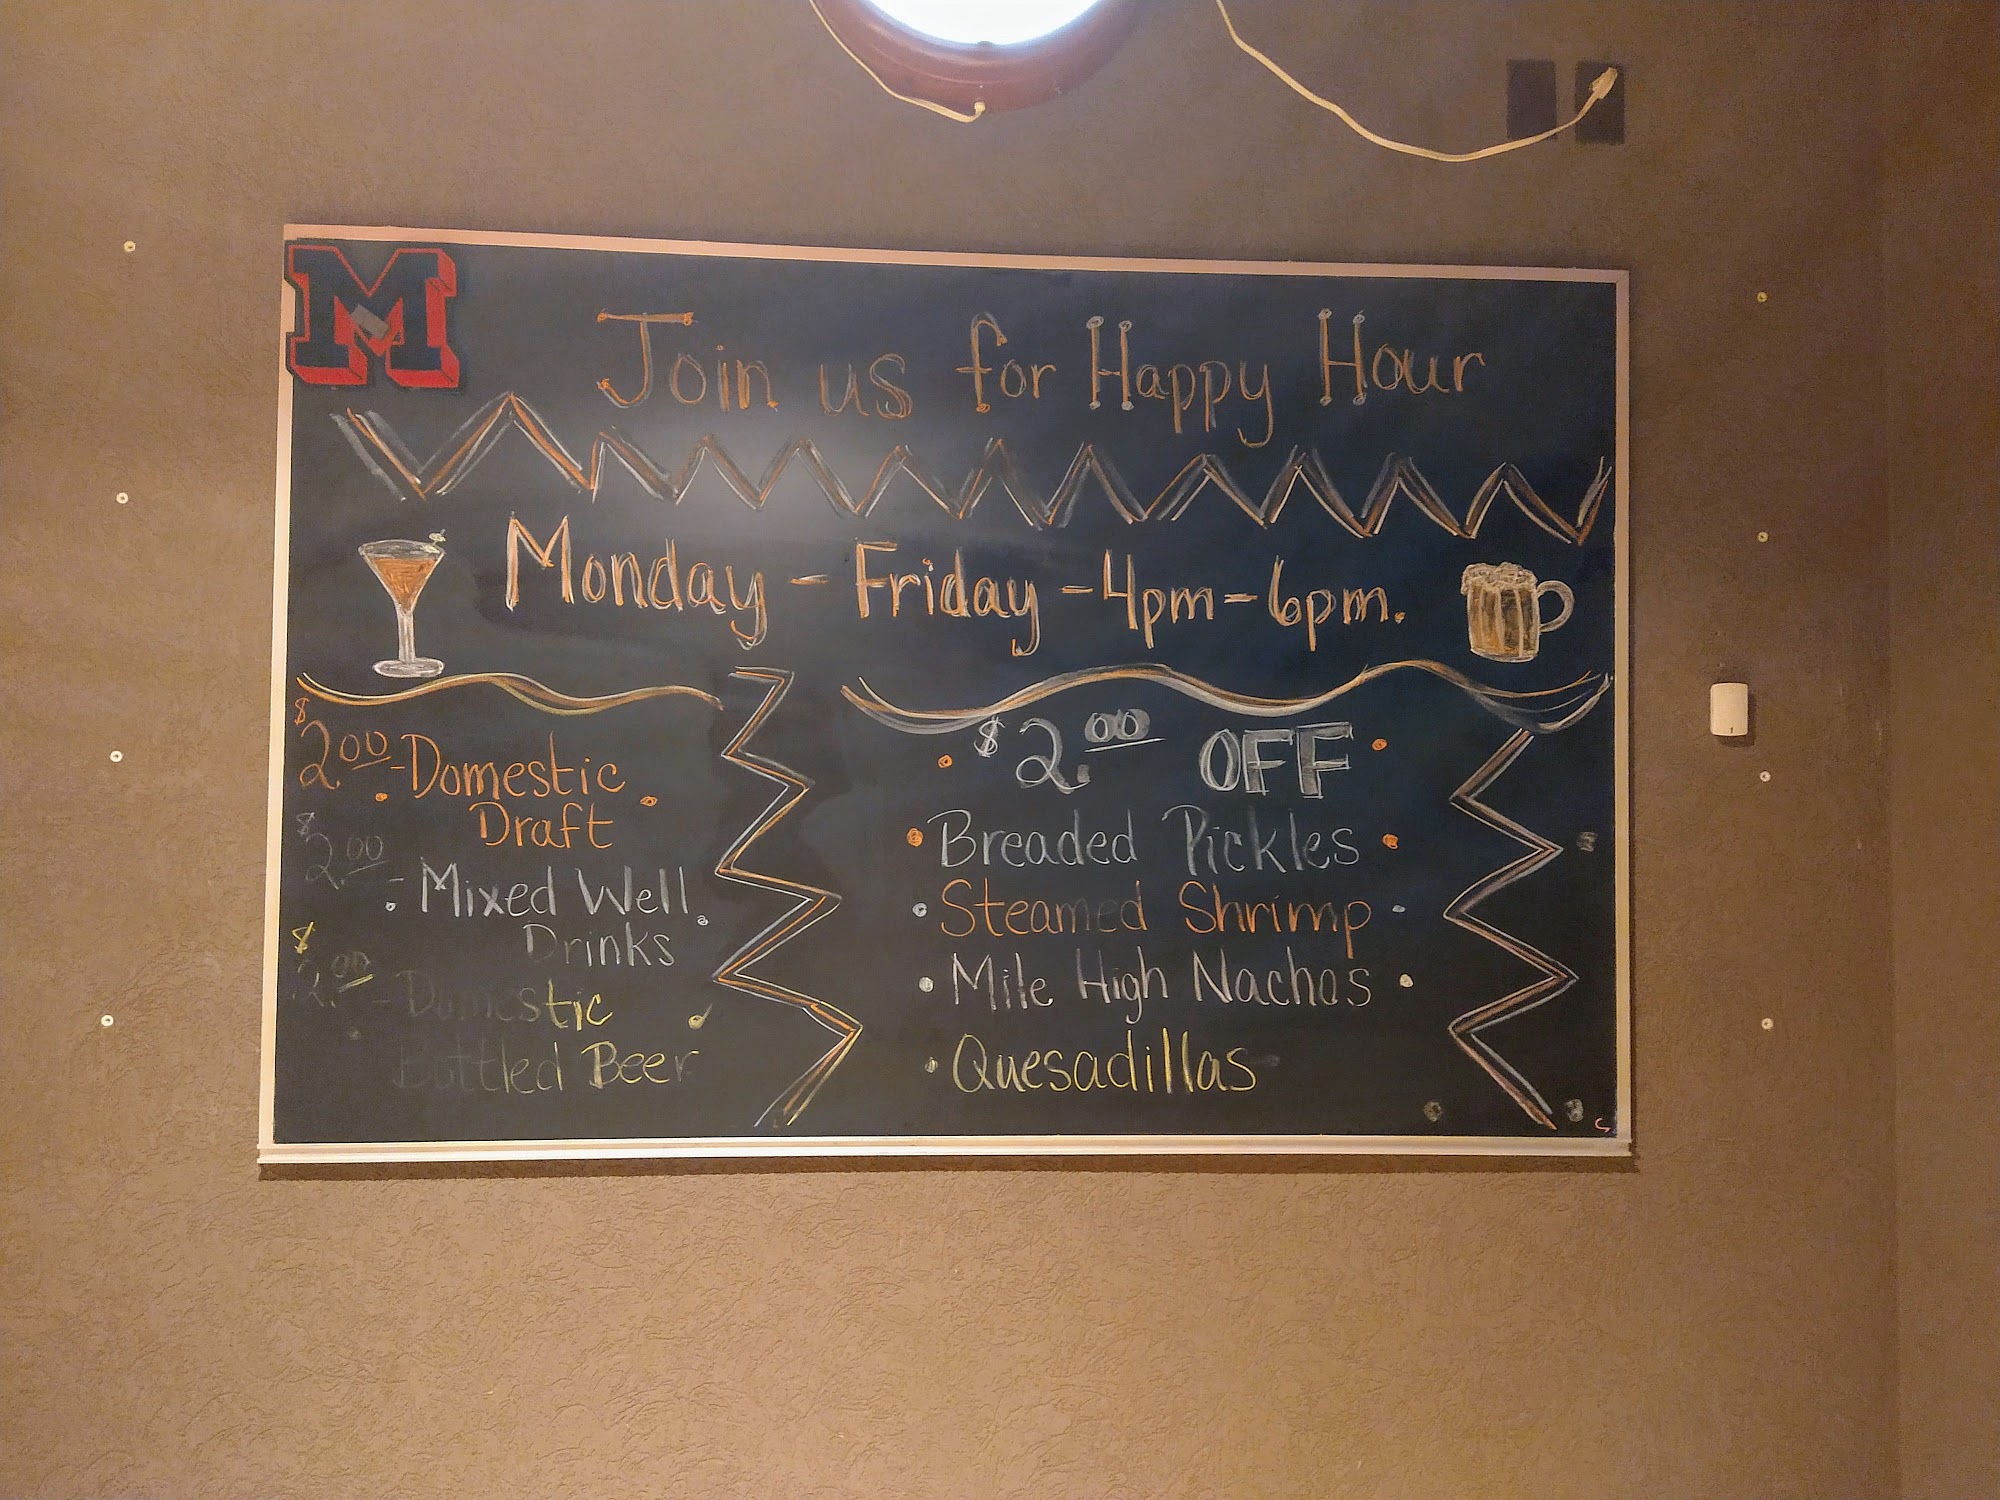 M
Join us for Happy Hour
Monday - Friday - 4pm - 6pm.
$2.00 - Domestic
Draft
$2.00 - Mixed Well
Drinks
$2.00 - Domestic
Bottled Beer
$2.00 OFF
• Breaded Pickles •
• Steamed Shrimp •
• Mile High Nachos •
• Quesadillas